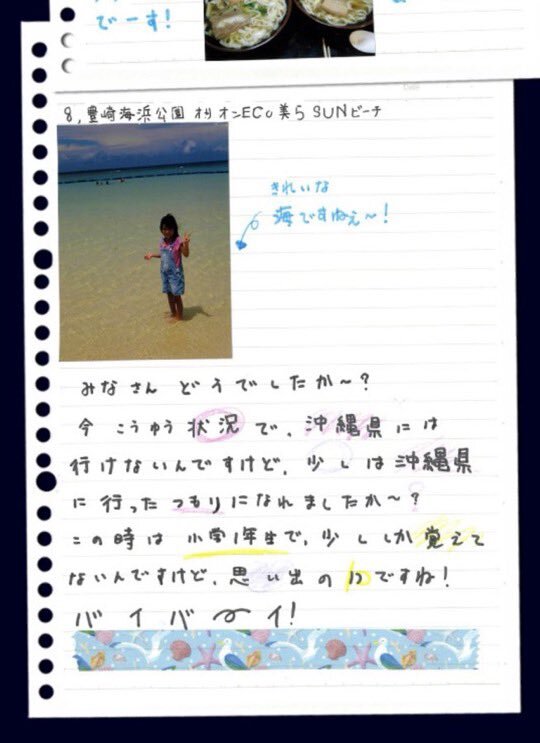 でーす!
8, 豊崎海浜公園 オリオンECO美らSUNビーチ
きれいな
海ですねぇ〜!
みなさん どうでしたか〜?
今 こうゆう 状況 で、沖縄県 には
行けないんですけど、少しは 沖縄県
に行った つもり になれましたか〜?
この時は 小学1年生で、少ししか 覚えて
ないんですけど、思い出の 1つ ですね!
バイバ〜イ!